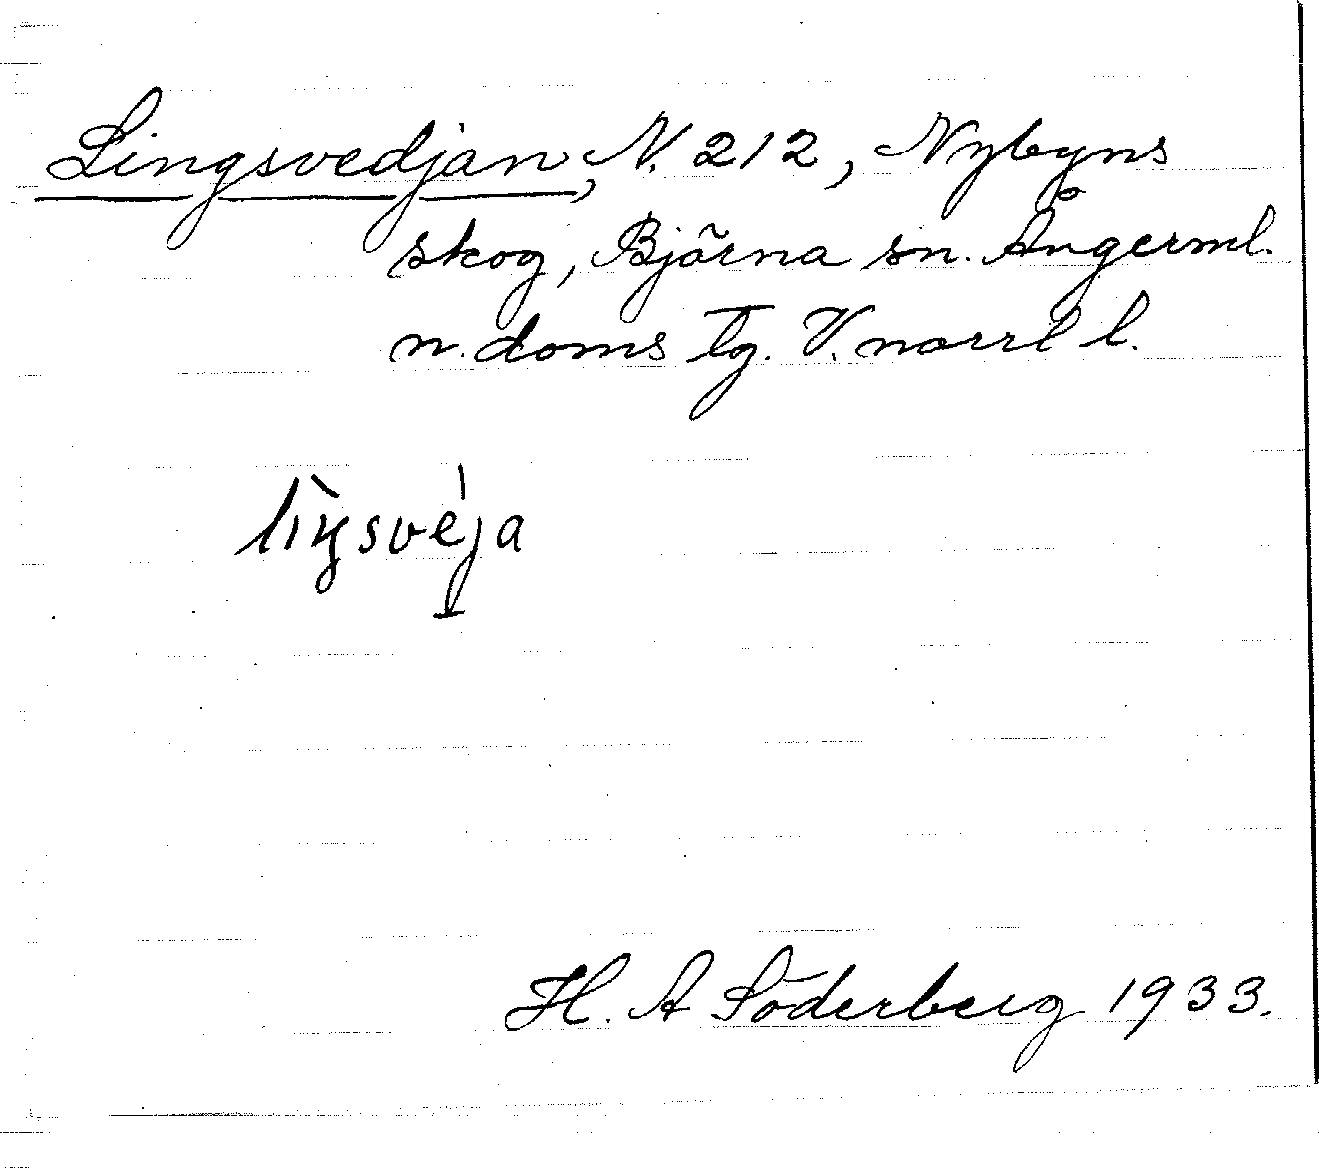 Lingsvedjan, N. 212, Nybyns
skog, Björna sn. Ångerml.
n. doms tg. V. norrl l.
lìŋsvéja
H. A Söderberg 1933.